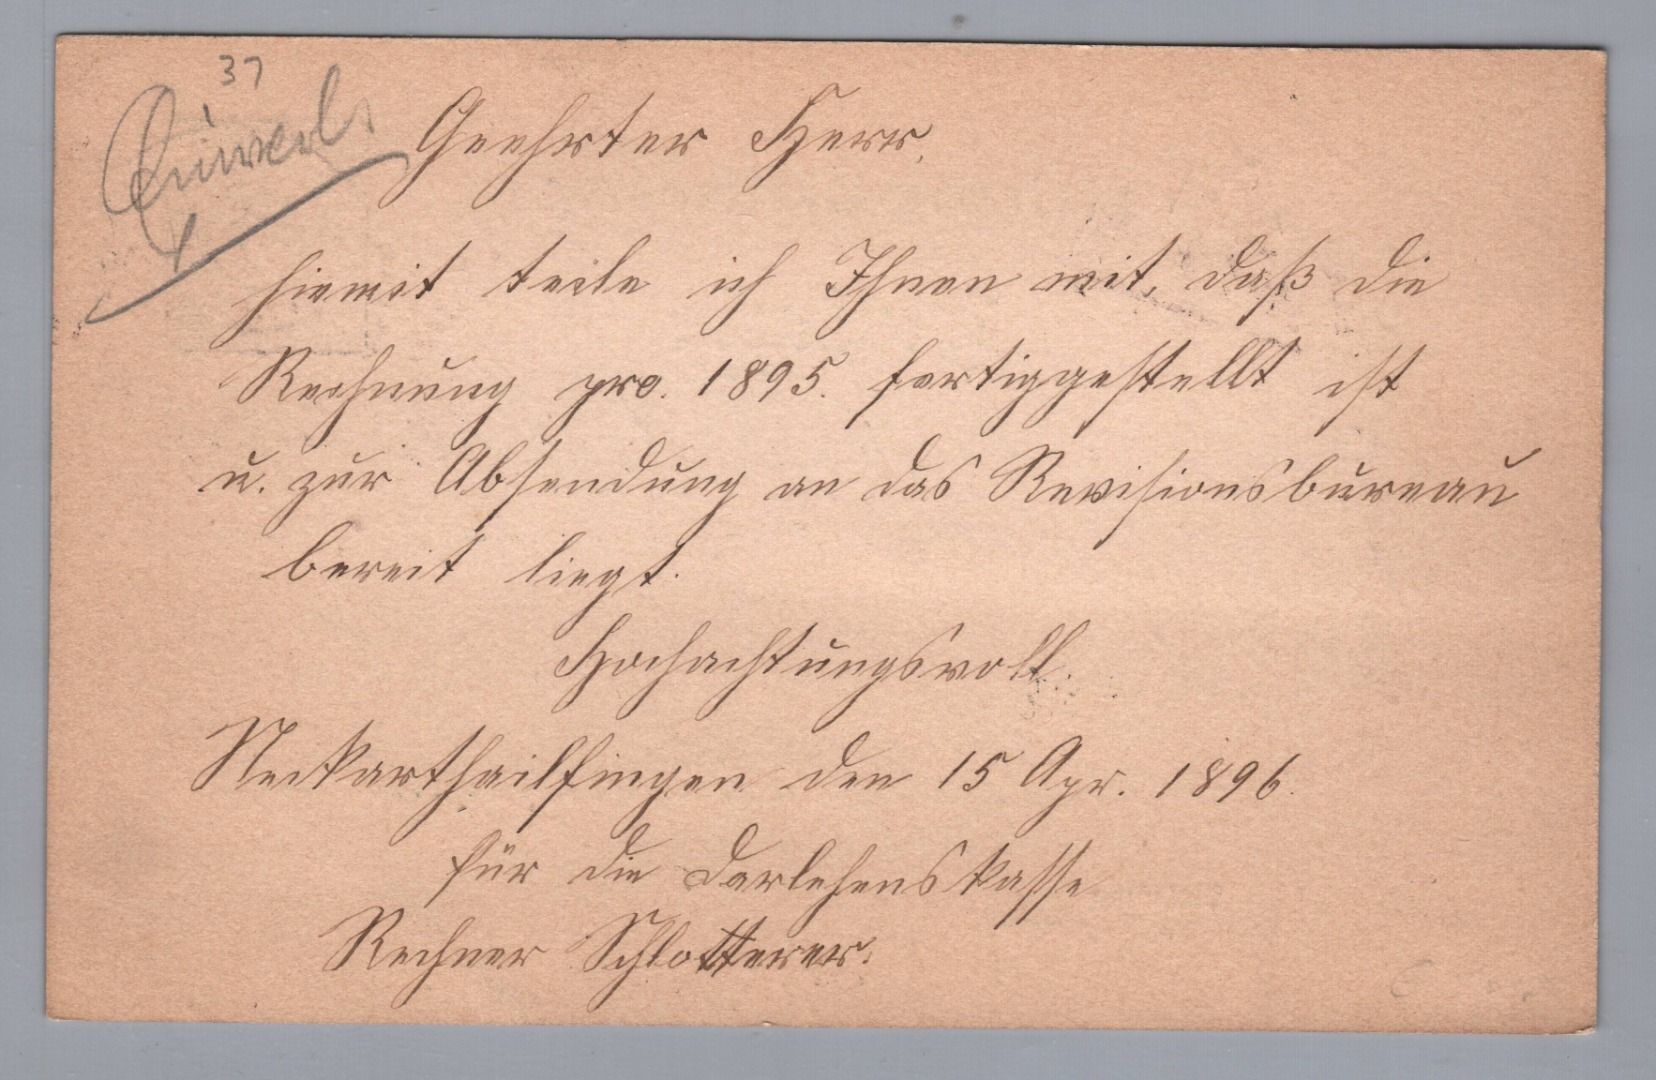 37
Geehrter Herr,
hiemit teile ich Ihnen mit, daß die
Rechnung pro. 1895. fertiggestellt ist
u. zur Absendung an das Revisionsbureau
bereit liegt.
Hochachtungsvoll.
Neckarthailfingen den 15 Apr. 1896.
für die Darlehenskasse
Rechner Schlotterer.